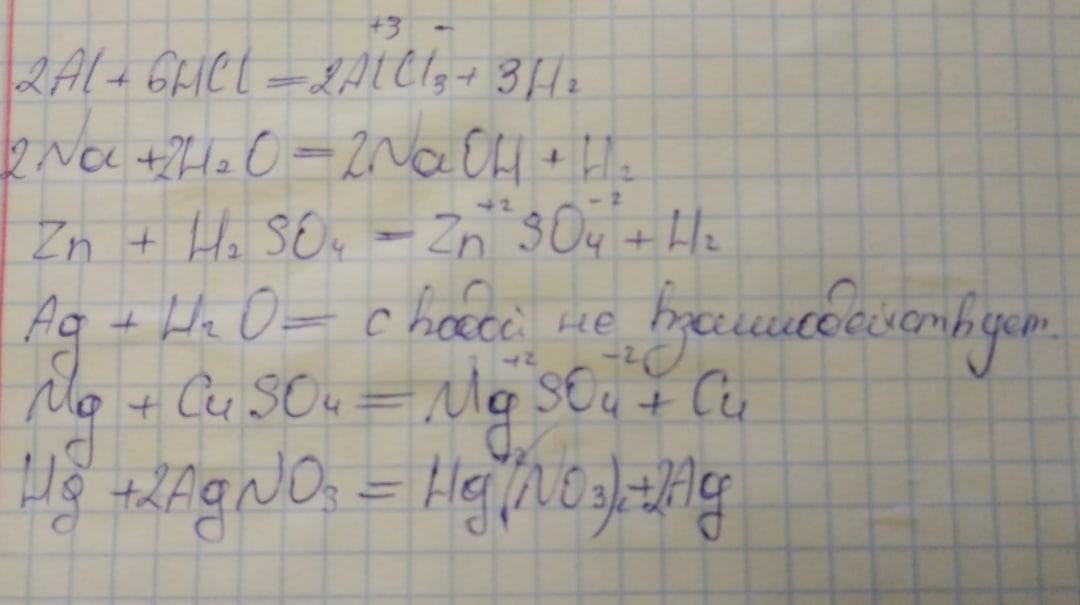 +3 -
2Al + 6HCl = 2AlCl₃ + 3H₂
2Na + 2H₂O = 2NaOH + H₂
+2 -2
Zn + H₂SO₄ = ZnSO₄ + H₂
Ag + H₂O = с водой не взаимодействует.
+2 -2
Mg + CuSO₄ = MgSO₄ + Cu
Hg + 2AgNO₃ = Hg(NO₃)₂ + 2Ag